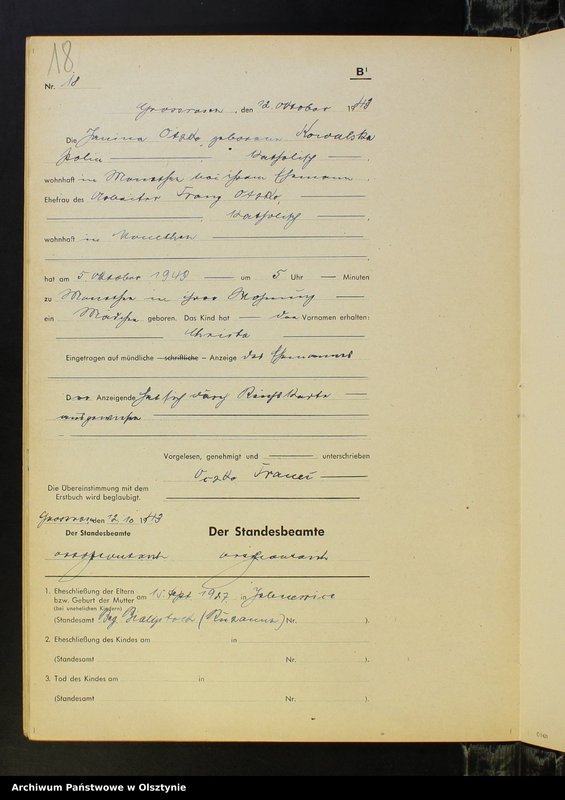 18
B¹
Nr. 18
Grossrosen, den 12. Oktober 1943
Die Janina Otzko, geborene Kowalska
Polin — Katholisch —,
wohnhaft in Monethen bei ihrem Ehemann.
Ehefrau des Arbeiter Franz Otzko,
—, Katholisch —,
wohnhaft in Monethen —
hat am 5. Oktober 1943 — um 5 Uhr — Minuten
zu Monethen in ihrer Wohnung —
ein Mädchen geboren. Das Kind hat — den Vornamen erhalten:
Christa
Eingetragen auf mündliche – schriftliche – Anzeige des Ehemannes
Der Anzeigende hat sich durch Reichskarte —
ausgewiesen
Vorgelesen, genehmigt und — unterschrieben
Franci
Die Übereinstimmung mit dem
Erstbuch wird beglaubigt.
Grossrosen, den 12. 10. 1943
Der Standesbeamte
Der Standesbeamte
1. Eheschließung der Eltern
bzw. Geburt der Mutter am 15. Sept. 1927 in
(bei unehelichen Kindern)
(Standesamt Bez. Bialystock ( ) Nr. ).
2. Eheschließung des Kindes am in
(Standesamt Nr. ).
3. Tod des Kindes am in
(Standesamt Nr. ).
Archiwum Państwowe w Olsztynie